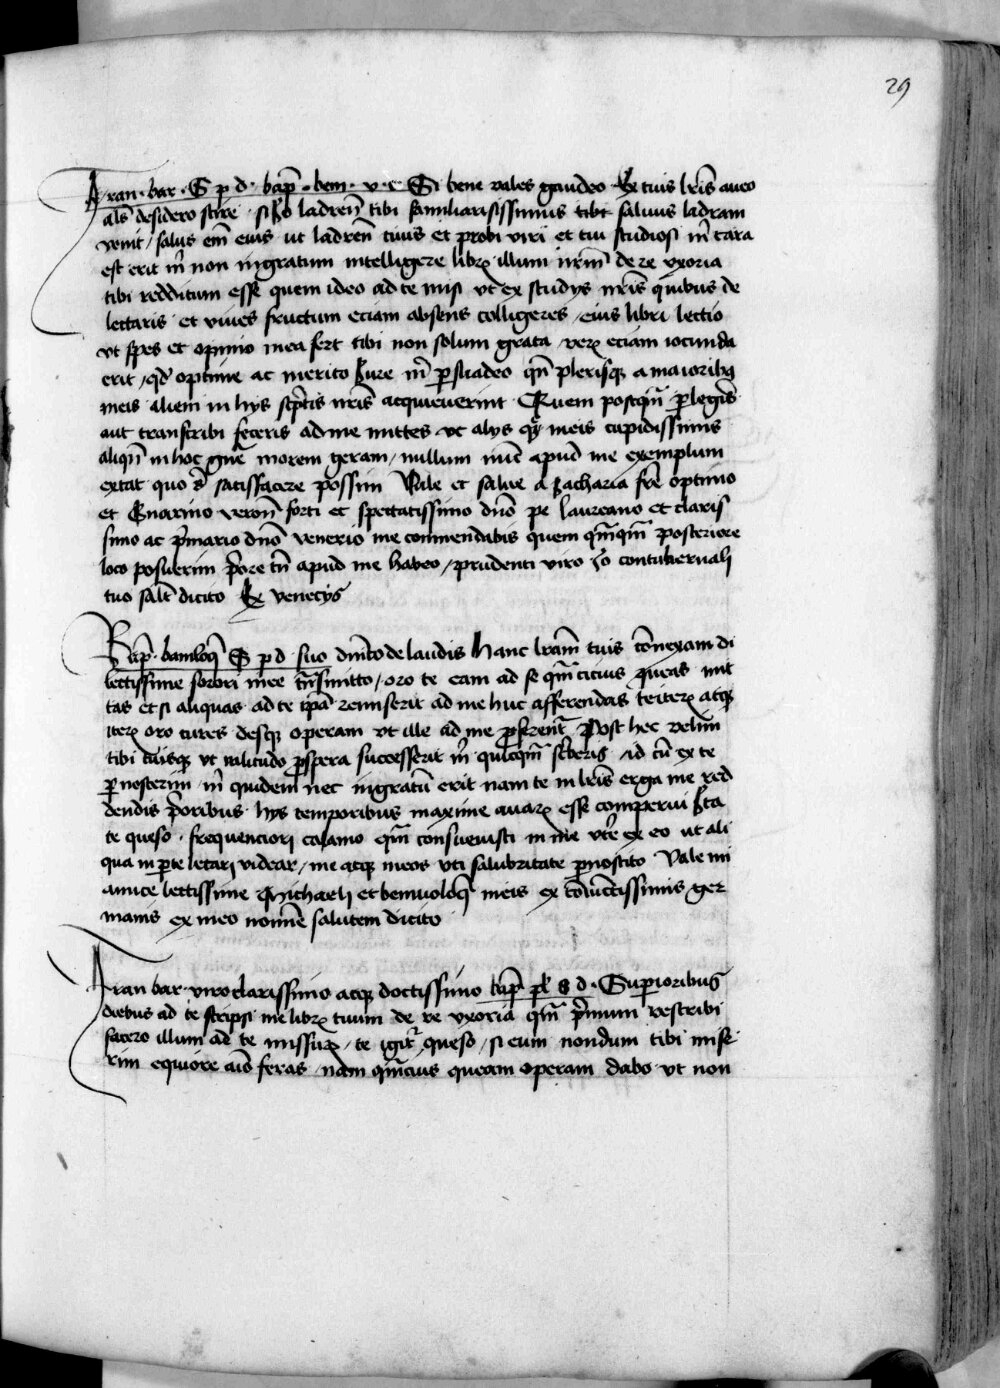 29
Fran. bar. S p d. bap̅. bem. v. c. Si bene vales gaudeo Ex tuis lr̅is aveo
als̅ desidero scire. si Io ladren̅ tibi familiarisissimus tibi saluus ladram
venit / salus em̅ eius ut ladren̅ ciuis et probi viri et tui studiosi m̅ cara
est erit m̅ non ingratum intelligere libr̅ illum nr̅m̅ de re vxoria
tibi redditum esse quem ideo ad te misi vt ex studys nr̅is quibus de
lectaris et viues fructum eciam absens colligeres / eius libri lectio
vt spes et opinio mea fert tibi non solum grata / ver̅ eciam iocunda
erit / qd̅ optime ac merito Iure m̅ p̲suadeo qn̅ plerisq̨ a maioribꝫ
meis alieni in hys sc̅ptis nr̅is acquieuerint Quem postqm̅ p̲legis̅
aut transcribi feceris ad me mittes vt alys meis cupidissimis
aliqn̅ in hoc gn̅e morem geram / nullum nu̅c apud me exemplum
extat quo satisfacere possim Vale et salue a zacharia fr̅e optimo
et Guarino veron̅ forti et spectatissimo dn̅o pe laureano et claris
simo ac p̅mario dn̅o venerio me commendabis quem qm̅qm̅ posteriore
loco posuerim p̅ore tn̅ apud me habeo / prudenti viro Io contubernali
tuo salt̅ dicito Ex venecys
Bap̅. bauiloq̅ S p d suo dm̅co de laudis Hanc lr̅am̅ tuis co̅nexam di
lectissime sorori mee tn̅smitto / oro te eam ad se qm̅ citius queas mit
tas et si aliquas ad te ip̅a remiserit ad me huc afferendas te iter̅ atq̨
iter̅ oro cures desq̨ operam vt ille ad me p̲ferent̅ Post hec velim
tibi tuisq̨ vt valitudo p̲spera successerit m̅ quicqm̅ sc̅beris id cu̅ ex te
p̲noscerim m̅ quidem nec ingratu̅ erit nam te in lr̅is erga me red
dendis p̅oribus hys temporibus maxime auar̅ esse comperui Ita
te queso. frequenciori calamo qm̅ consueuisti in me vt̅e ex eo ut ali
qua in p̲te letari videar / me atq̨ meos vti salubritate p̲noscito Vale mi
amice lectissime Michaeli et beniuoloq̅ meis ex co̅iu̅ctissimis ger
manis ex meo nomi̅e salutem dicito
Fran bar. viro clarissimo atq̨ doctissimo bap̅ pl̅ S d. Sup̲ioribus
diebus ad te scripsi me libr̅ tuum de re vxoria qm̅ p̅mum rescribi
facero illum ad te missur̅ / te igit̅ queso / si eum nondum tibi mise
rim equiore ai̅o feras / nam qm̅cius queam operam dabo vt non